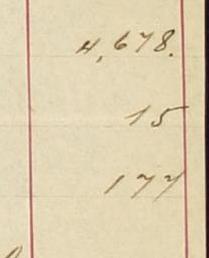 4,678.
15
177